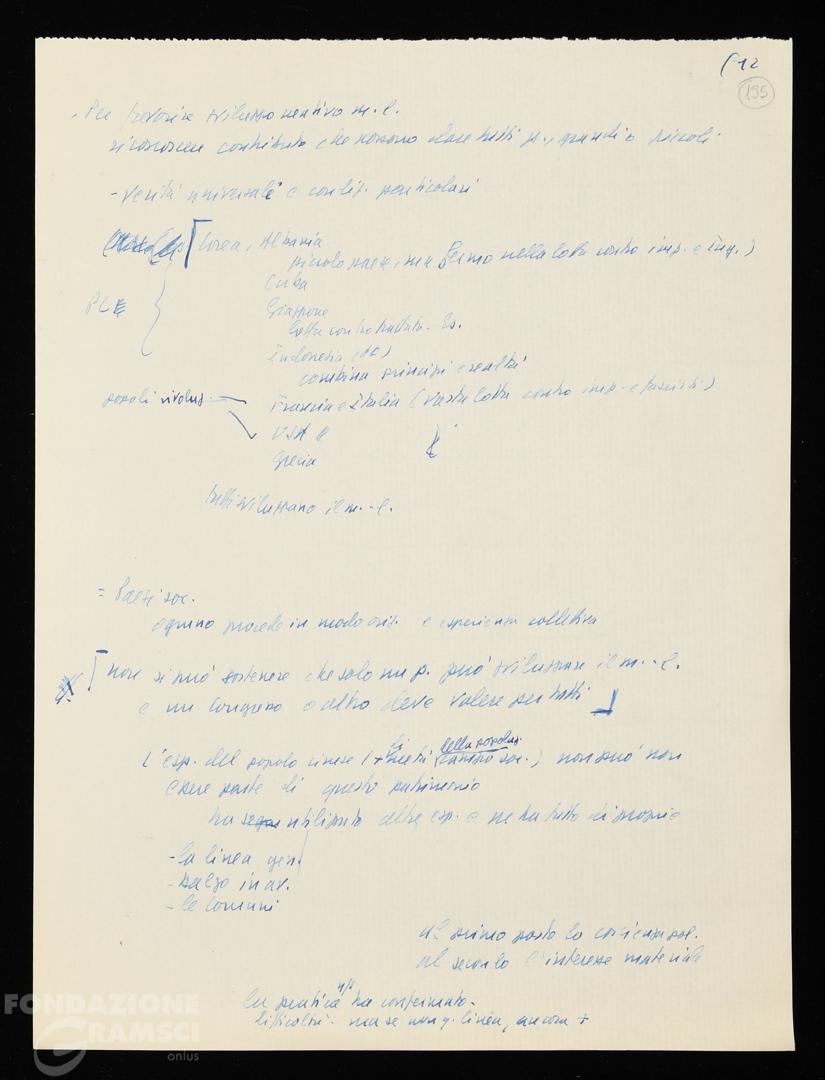 (12
195
- Per favorire sviluppo creativo m.-l.
riconoscere contributo che possono dare tutti p., grandi o piccoli
- verità universale e condiz. particolari
[ Corea, Albania
piccolo paese, ma fermo nella lotta contro imp. e ing.)
Cuba
PCE
Giappone
lotta contro trattato.
Indonesia (PC)
combina principi e realtà
popoli rivoluz.
Francia e Italia (vasta lotta contro imp. e fascisti)
USA
Grecia
tutti sviluppano il m.-l.
= Paesi soc.
ognuno procede in modo orig. e esperienza collettiva
[ non si può sostenere che solo un p. può sviluppare il m.-l.
e un Congresso o altro deve valere per tutti ]
della popolaz.
L'esp. del popolo cinese (+ di metà campo soc.) non può non
essere parte di questo patrimonio
ha utilizzato altre esp. e ne ha tutto di proprie
- la linea gen.
- balzo in av.
- le comuni
al primo posto la coscienza soc.
al secondo l'interesse materiale
la pratica ha confermato.
difficoltà. ma se non q. linea, ancora +
FONDAZIONE
GRAMSCI
onlus